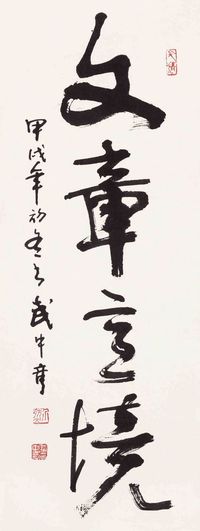 文章意境
甲戌年初冬武中奇